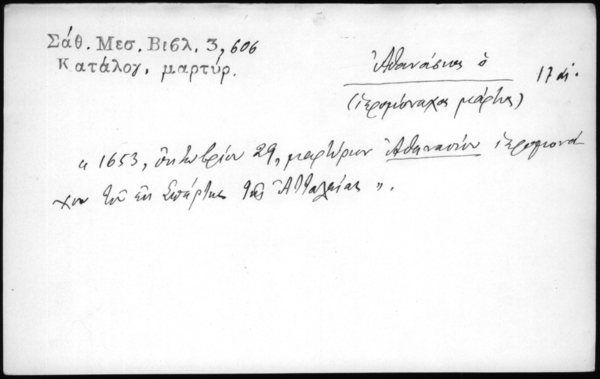 Σάθ. Μεσ. Βιβλ. 3, 606
Κατάλογ. μαρτύρ.
Ἀθανάσιος ὁ
(ἱερομόναχος μάρτυς)
17 αἰ.
" 1653, ὀκτωβρίου 29, μαρτύριον Ἀθανασίου ἱερομονά
χου τοῦ ἐκ Σπάρτης τῆς Ἀτταλείας ".